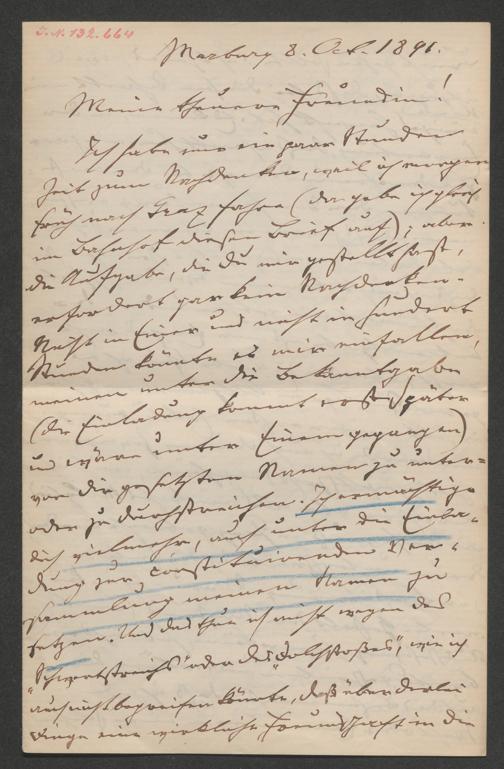 J. N. 132.664
Marburg 8. Oct. 1891.
Meine theuere Freundin!
Ich habe nur ein paar Stunden
Zeit zum Nachdenken, weil ich morgen
früh nach Graz fahre (da gebe ich gleich
im Bahnhof diesen Brief auf); aber
die Aufgabe, die Du mir gestellt hast,
erfordert gar kein Nachdenken.
Nicht in Einer und nicht in hundert
Stunden könnte es mir einfallen,
meinen unter die Bekanntgabe
(die Einladung kommt erst später
und wäre unter Einem gegangen)
vor die gesetzten Namen zu unter-
oder zu durchstreichen. Ich ermächtige
dich vielmehr, auch unter die Einla-
dung zur constituirenden Ver-
sammlung meinen Namen zu
setzen. Und das thue ich nicht wegen des
"Schwertstreichs" oder des "Dolchstoßes", wie ich
auch nicht begreifen könnte, daß über derlei
Dinge eine wirkliche Freundschaft in die